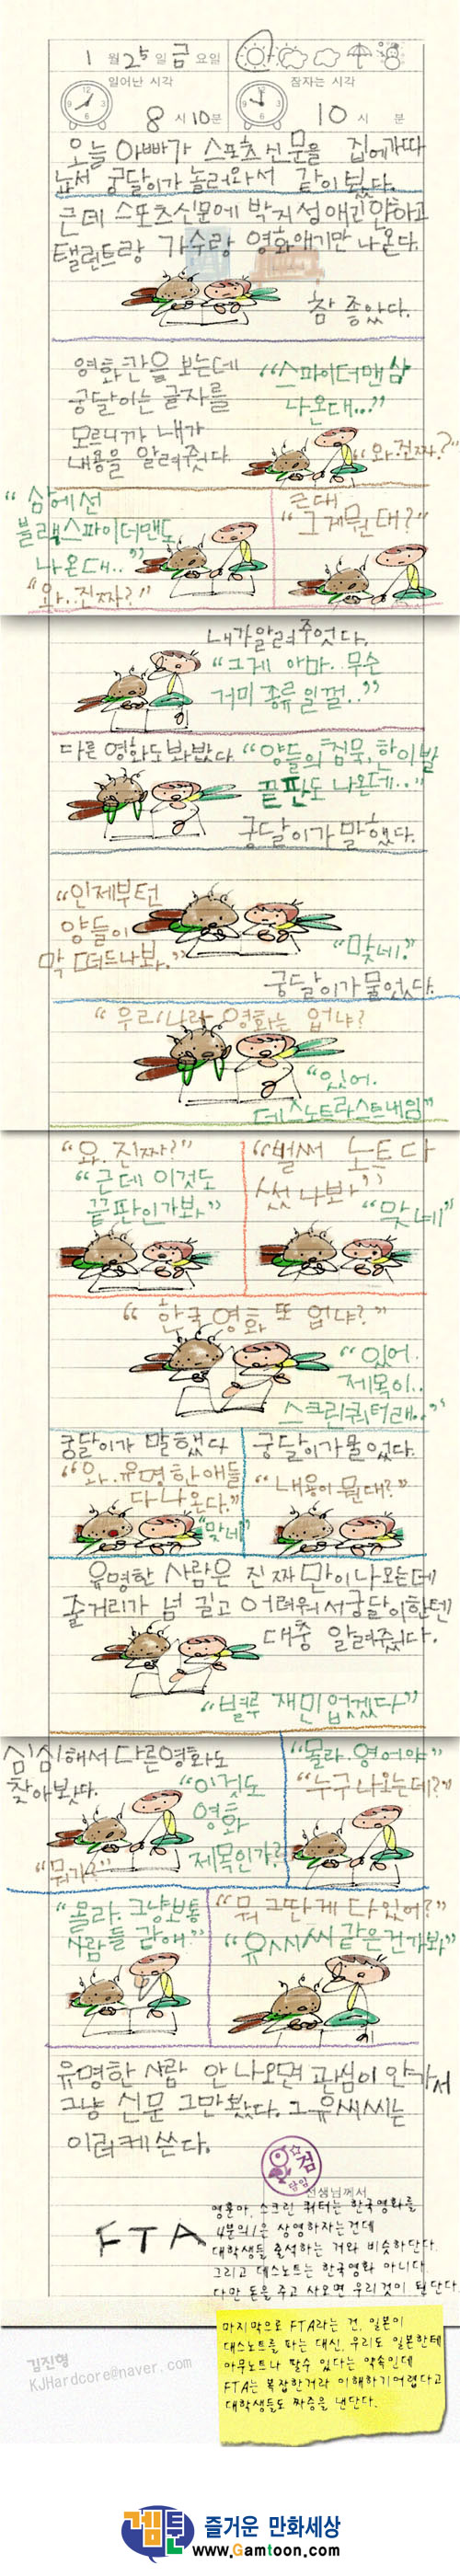 1 월 25 일 금 요일
일어난 시각
잠자는 시각
8 시 10 분
10 시 분
오늘 아빠가 스포츠신문을 집에가따
놔서 궁달이가 놀러와서 같이 봤다.
근데 스포츠신문에 박지성얘긴 안하고
탤런트랑 가수랑 영화얘기만 나온다.
참 좋았다.
영화칸을 보는데
궁달이는 글자를
모르니까 내가
내용을 알려줫다
“스파이더맨삼
나온대...”
“와.진짜?”
“삼에선
블랙스파이더맨도
나온대..”
“와..진짜?”
근대
“그게뭔대?”
내가알려주엇다.
“그게 아마..무슨
거미 종류일껄..”
다른 영화도봐봤다
“양들의침묵,한이발
끝판도 나온데..”
궁달이가 말했다.
“인제부턴
양들이
막 떠드나봐.”
“맞네.”
궁달이가물었다.
“우리나라 영화는 업냐?
“있어.
데스노트라스트네임”
“와.진짜?”
“근데 이것도
끝판인가봐”
“벌써 노트다
썼나봐”
“맞네”
“한국영화 또 업냐?”
“있어.
제목이..
스크린쿼터래..”
궁달이가 말했다
“와.유명한애들
다나온다.”
“맞네”
궁달이가물었다.
“내용이 뭔대?”
유명한 사람은 진짜 만이나오는데
줄거리가 넘 길고 어려워서궁달이한텐
대충 알려줬다.
“별루 재미업겠다”
심심해서 다른영화도
찾아봤다.
“이것도
영화
제목인가?
“뭐가?”
“몰라.영어야”
“누구나오는데?”
“몰라.그냥보통
사람들 같애.”
“뭐 그딴게 다있어?”
“유씨씨 같은건가봐”
유명한 사람 안나오면 관심이 안가서
그냥 신문 그만봤다.그유씨씨는
이러케쓴다.
FTA
선생님께서
영훈아, 스크린 쿼터는 한국영화를
4분의1은 상영하자는건데
대학생들 출석하는 거와 비슷하단다.
그리고 데스노트는 한국영화 아니다.
다만 돈을 주고 사오면 우리것이 된단다.
마지막으로 FTA라는 건, 일본이
데스노트를 파는 대신, 우리도 일본한테
아무노트나 팔수 있다는 약속인데
FTA는 복잡한거라 이해하기어렵다고
대학생들도 짜증을 낸단다.
김진형
KJHardcore@naver.com
겜툰 즐거운 만화세상
www.Gamtoon.com